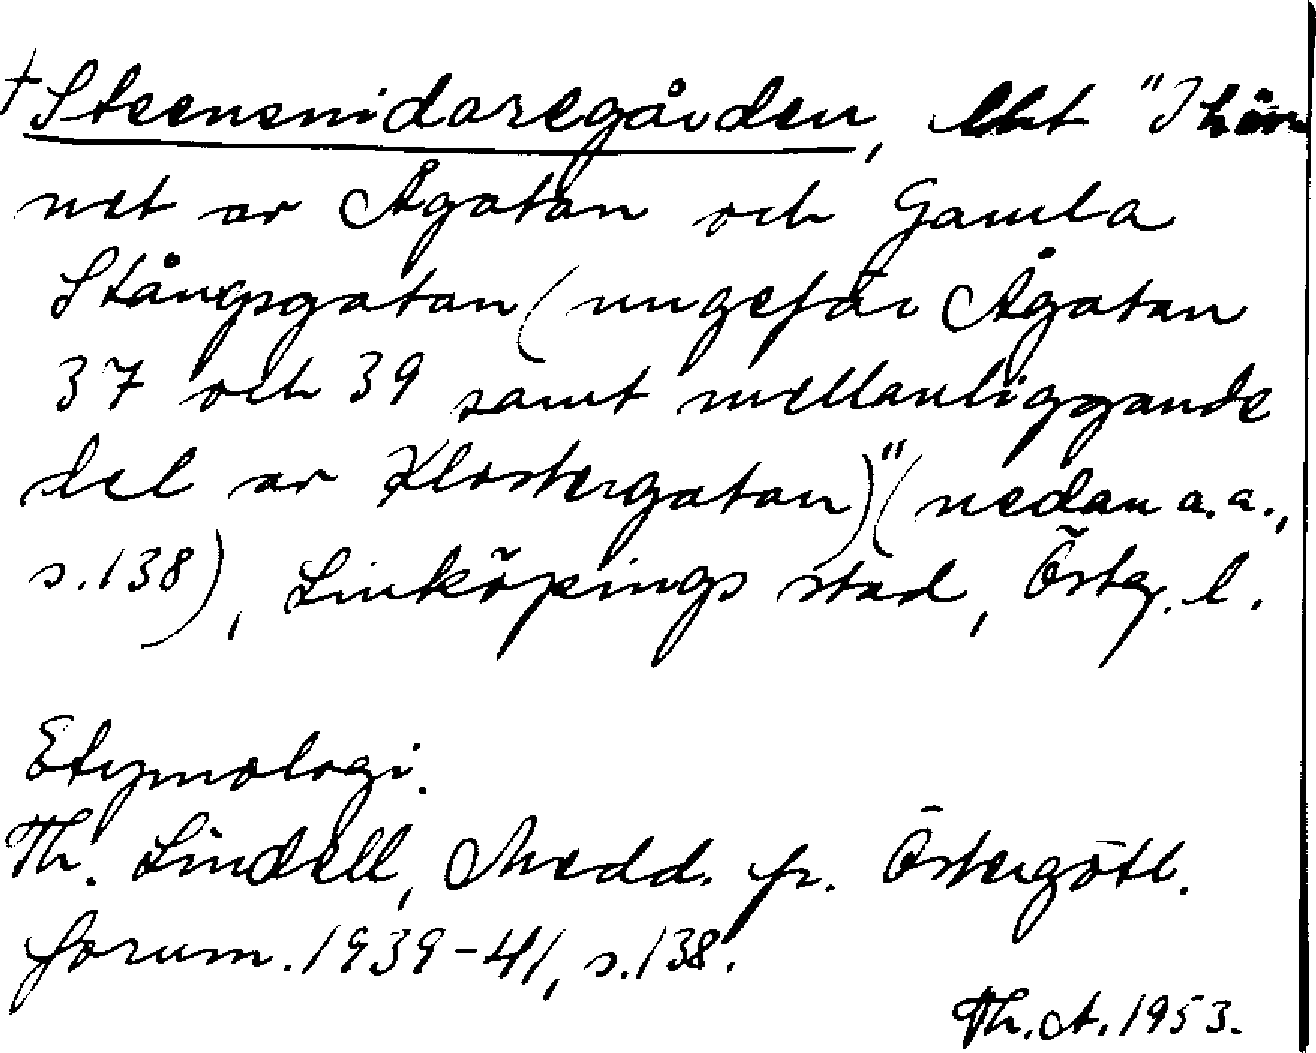 †Steensnidaregården, ebt "I hör
net av Ågatan och Gamla
Stångsgatan (ungefär Ågatan
37 och 39 samt mellanliggande
del av Klostergatan)" (nedan a.a.,
s.138), Linköpings stad, Östg. l.
Etymologi.
Th. Lindell, Medd. fr. Östergötl.
fornm. 1939-41, s.138.
Th. A. 1953.